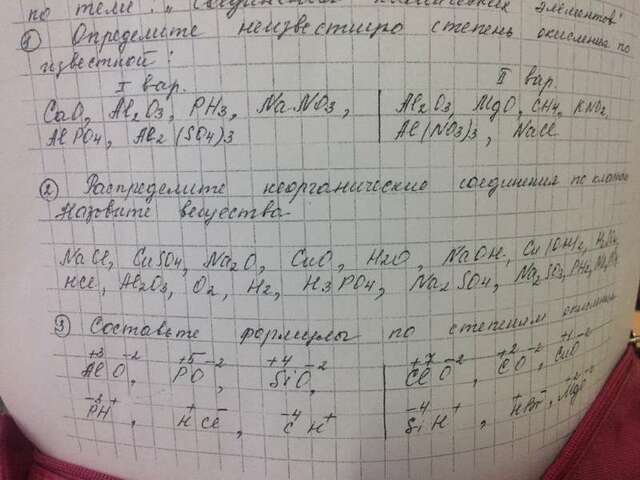 по теме: „Соединения химических элементов"
① Определите неизвестную степень окисления по
известной:
I вар. II вар.
CaO, Al₂O₃, PH₃, NaNO₃, Al₂O₃, MgO, CH₄, KNO₂,
AlPO₄, Al₂(SO₄)₃ Al(NO₃)₃, NaCl
② Распределите неорганические соединения по классам
Назовите вещества
NaCl, CuSO₄, Na₂O, CuO, H₂O, NaOH, Cu(OH)₂,
HCl, Al₂O₃, O₂, H₂, H₃PO₄, Na₂SO₄, Na₂SO₃, PH₃,
③ Составьте формулы по степеням окисления
Al⁺³O⁻², P⁺⁵O⁻², Si⁺⁴O⁻², Cl⁺⁷O⁻², C⁺²O⁻², Cu⁺¹O⁻²
P⁻³H⁺, H⁺Cl⁻, C⁻⁴H⁺ Si⁻⁴H⁺, H⁺Br⁻,